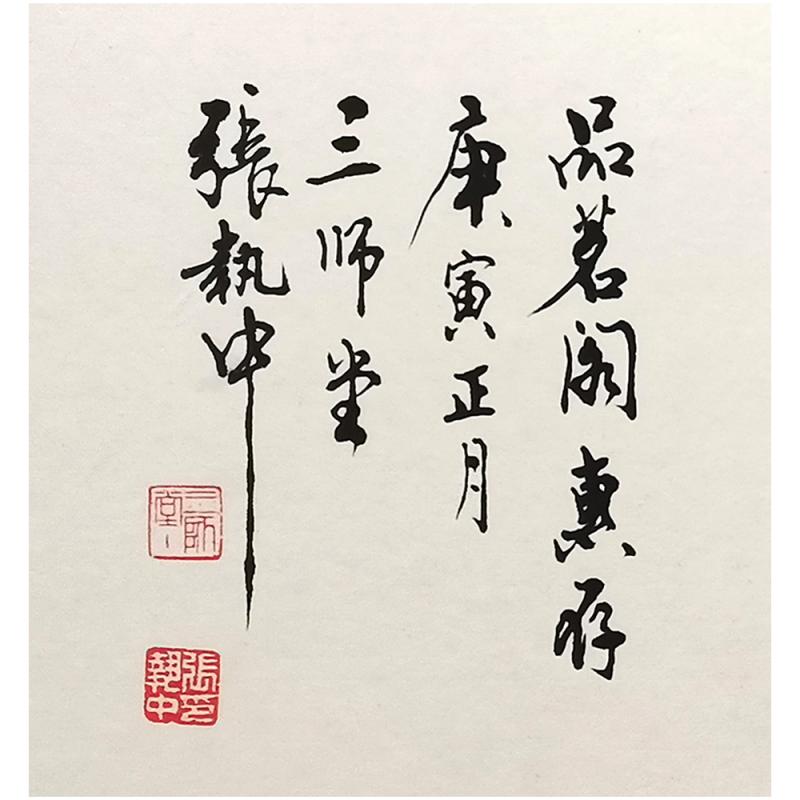 品茗阁惠存
庚寅正月
三师堂
張執中
三师堂
張執中印